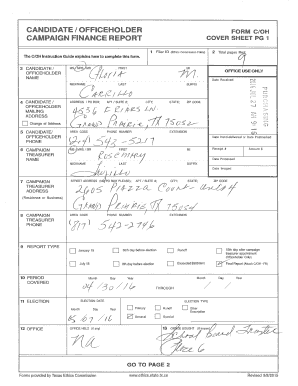 CANDIDATE / OFFICEHOLDER
CAMPAIGN FINANCE REPORT
FORM C/OH
COVER SHEET PG 1
The C/OH Instruction Guide explains how to complete this form.
1 Filer ID
2 Total pages filed:
9
3 CANDIDATE /
OFFICEHOLDER
NAME
FIRST
MI
Gloria M.
NICKNAME LAST SUFFIX
Carrillo
OFFICE USE ONLY
Date Received
4 CANDIDATE /
OFFICEHOLDER
MAILING
ADDRESS
Change of Address
ADDRESS / PO BOX; APT / SUITE #; CITY; STATE; ZIP CODE
Grand Prairie, TX 75052
5 CANDIDATE/
OFFICEHOLDER
PHONE
AREA CODE PHONE NUMBER EXTENSION
Date Hand-delivered or Date Postmarked
6 CAMPAIGN
TREASURER
NAME
FIRST
MI
Rosemary
NICKNAME LAST SUFFIX
Trujillo
Receipt # Amount $
Date Processed
Date Imaged
7 CAMPAIGN
TREASURER
ADDRESS
(Residence or Business)
CITY; STATE; ZIP CODE
2605 Piazza Court
Grand Prairie, TX
8 CAMPAIGN
TREASURER
PHONE
AREA CODE PHONE NUMBER EXTENSION
542-2746
9 REPORT TYPE
January 15
30th day before election
Runoff
15th day after campaign
treasurer appointment
(Officeholder Only)
July 15
8th day before election
Final Report (Attach C/OH - FR)
10 PERIOD
COVERED
Month Day Year
04/30/16
THROUGH
Month Day Year
11 ELECTION
ELECTION DATE
Month Day Year
05/07/16
ELECTION TYPE
Primary
Runoff
Other
Description
General
Special
12 OFFICE
OFFICE HELD (if any)
NA
13 OFFICE SOUGHT (if known)
School Board Trustee
Place 6
GO TO PAGE 2
Forms provided by Texas Ethics Commission
www.ethics.state.tx.us